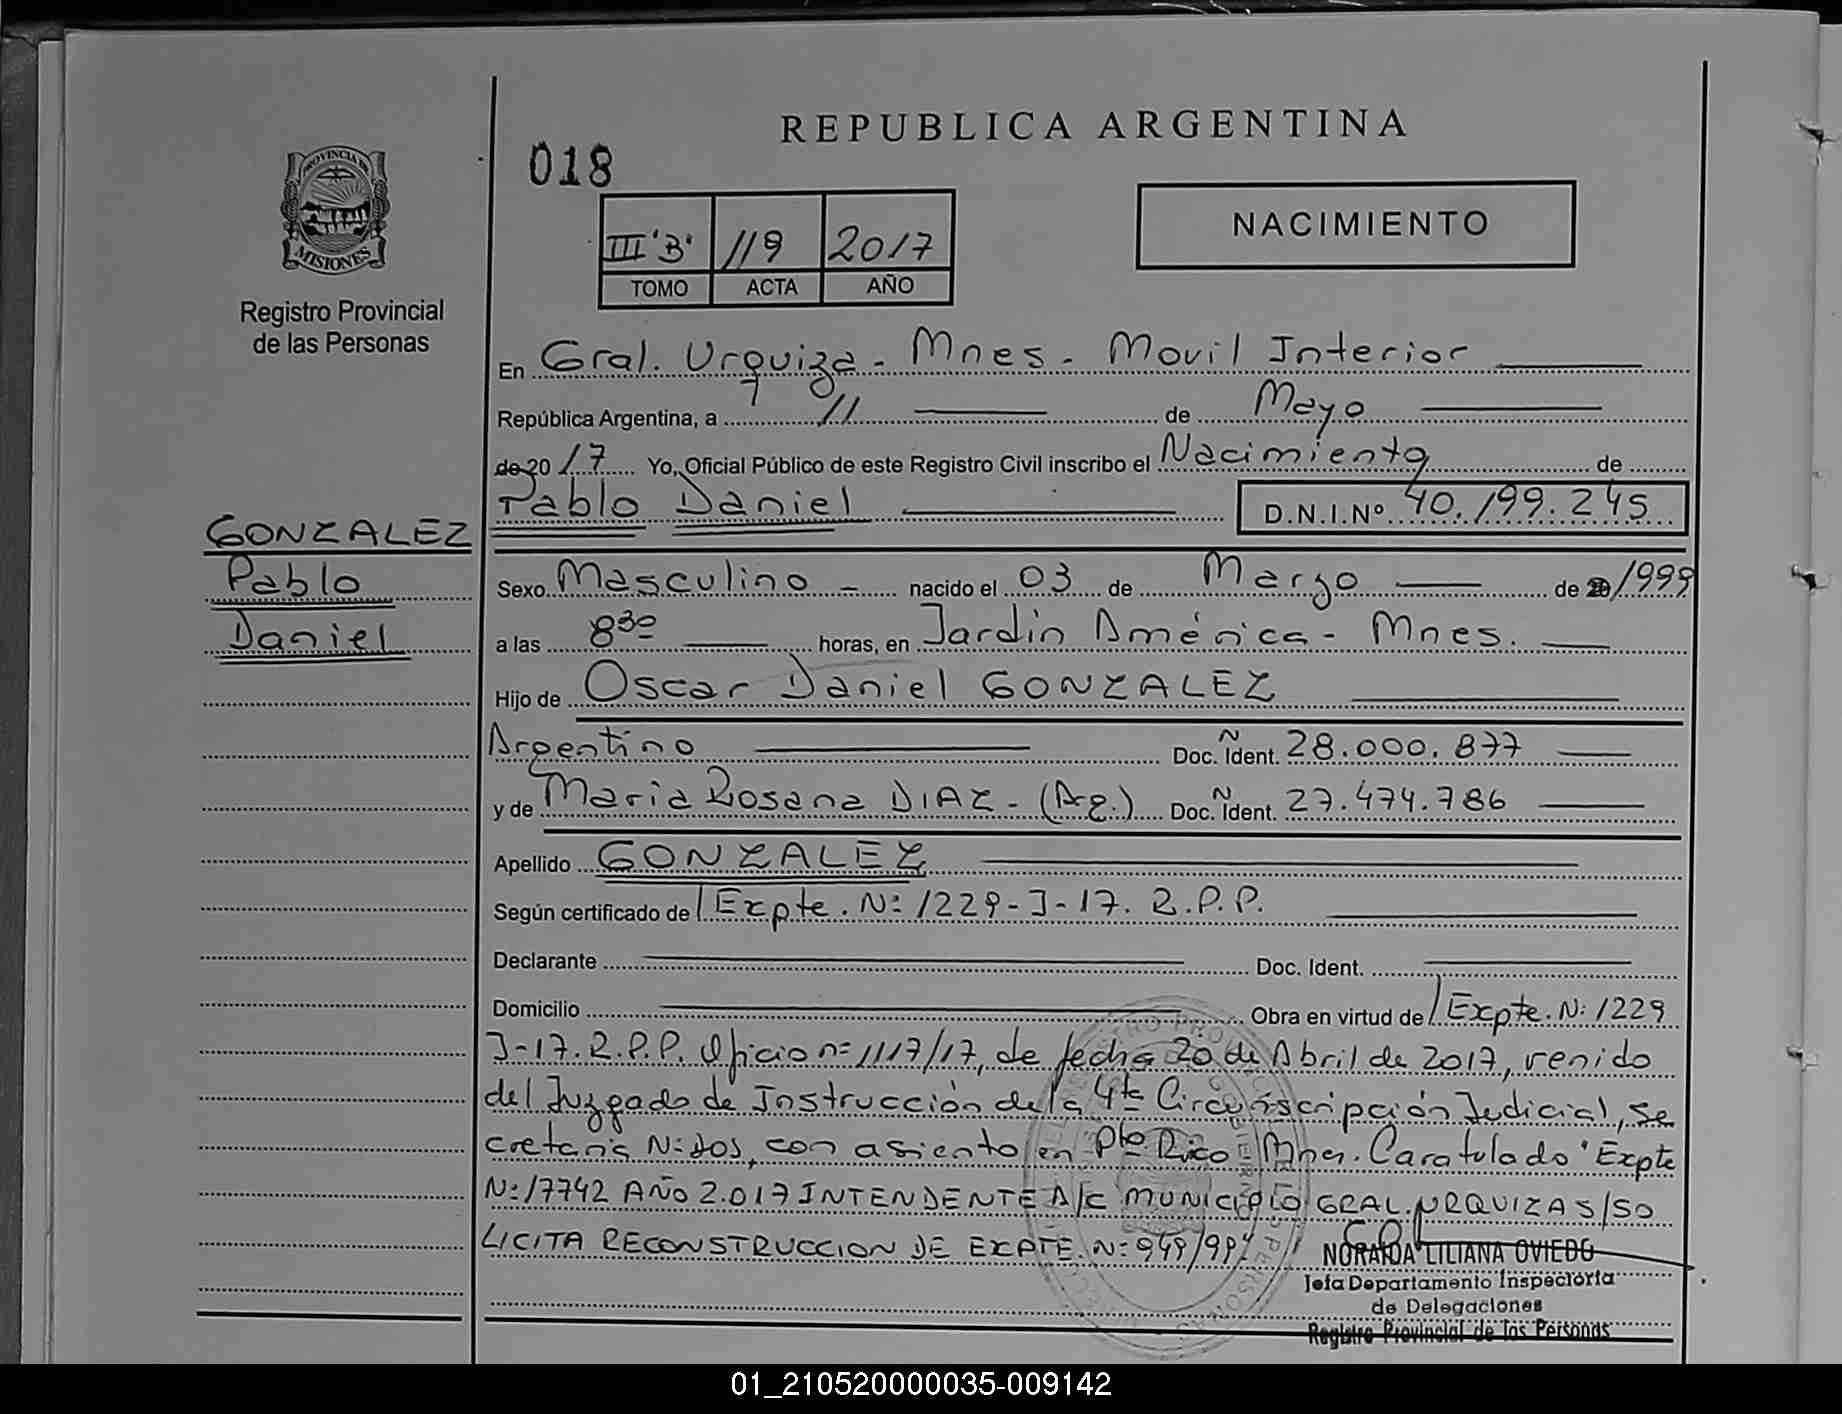 REPUBLICA ARGENTINA
018
PROVINCIA DE
MISIONES
Registro Provincial
de las Personas
III "B" 119 2017
TOMO ACTA AÑO
NACIMIENTO
En Gral. Urquiza - Mnes - Movil Interior
República Argentina, a 11 de Mayo
de 2017 Yo, Oficial Público de este Registro Civil inscribo el Nacimiento de
Pablo Daniel D.N.I.Nº 40.199.245
GONZALEZ
Pablo
Daniel
Sexo Masculino - nacido el 03 de Marzo de 1999
a las 8 30 horas, en Jardin América - Mnes.
Hijo de Oscar Daniel GONZALEZ
Argentino Doc. Ñ Ident. 28.000.877
y de Maria Rosana DIAZ - (Arg.) Doc. Ñ Ident. 27.474.786
Apellido GONZALEZ
Según certificado de Expte. Nº 1229-J-17. R.P.P.
Declarante Doc. Ident.
Domicilio Obra en virtud de Expte. Nº 1229
J-17. R.P.P. Oficio nº 1117/17, de fecha 20 de Abril de 2017, venido
del Juzgado de Instrucción de la 4ta Circunscripción Judicial, Se
cretaria Nº dos, con asiento en Pto Rico - Mnes. Caratulado "Expte
Nº 17742 AÑO 2.017 INTENDENTE A/C MUNICIPIO GRAL. URQUIZA S/SO
LICITA RECONSTRUCCION DE EXPTE. Nº 949/99"
NORAIDA LILIANA OVIEDO
Jefa Departamento Inspectoría
de Delegaciones
Registro Provincial de las Personas
01_210520000035-009142